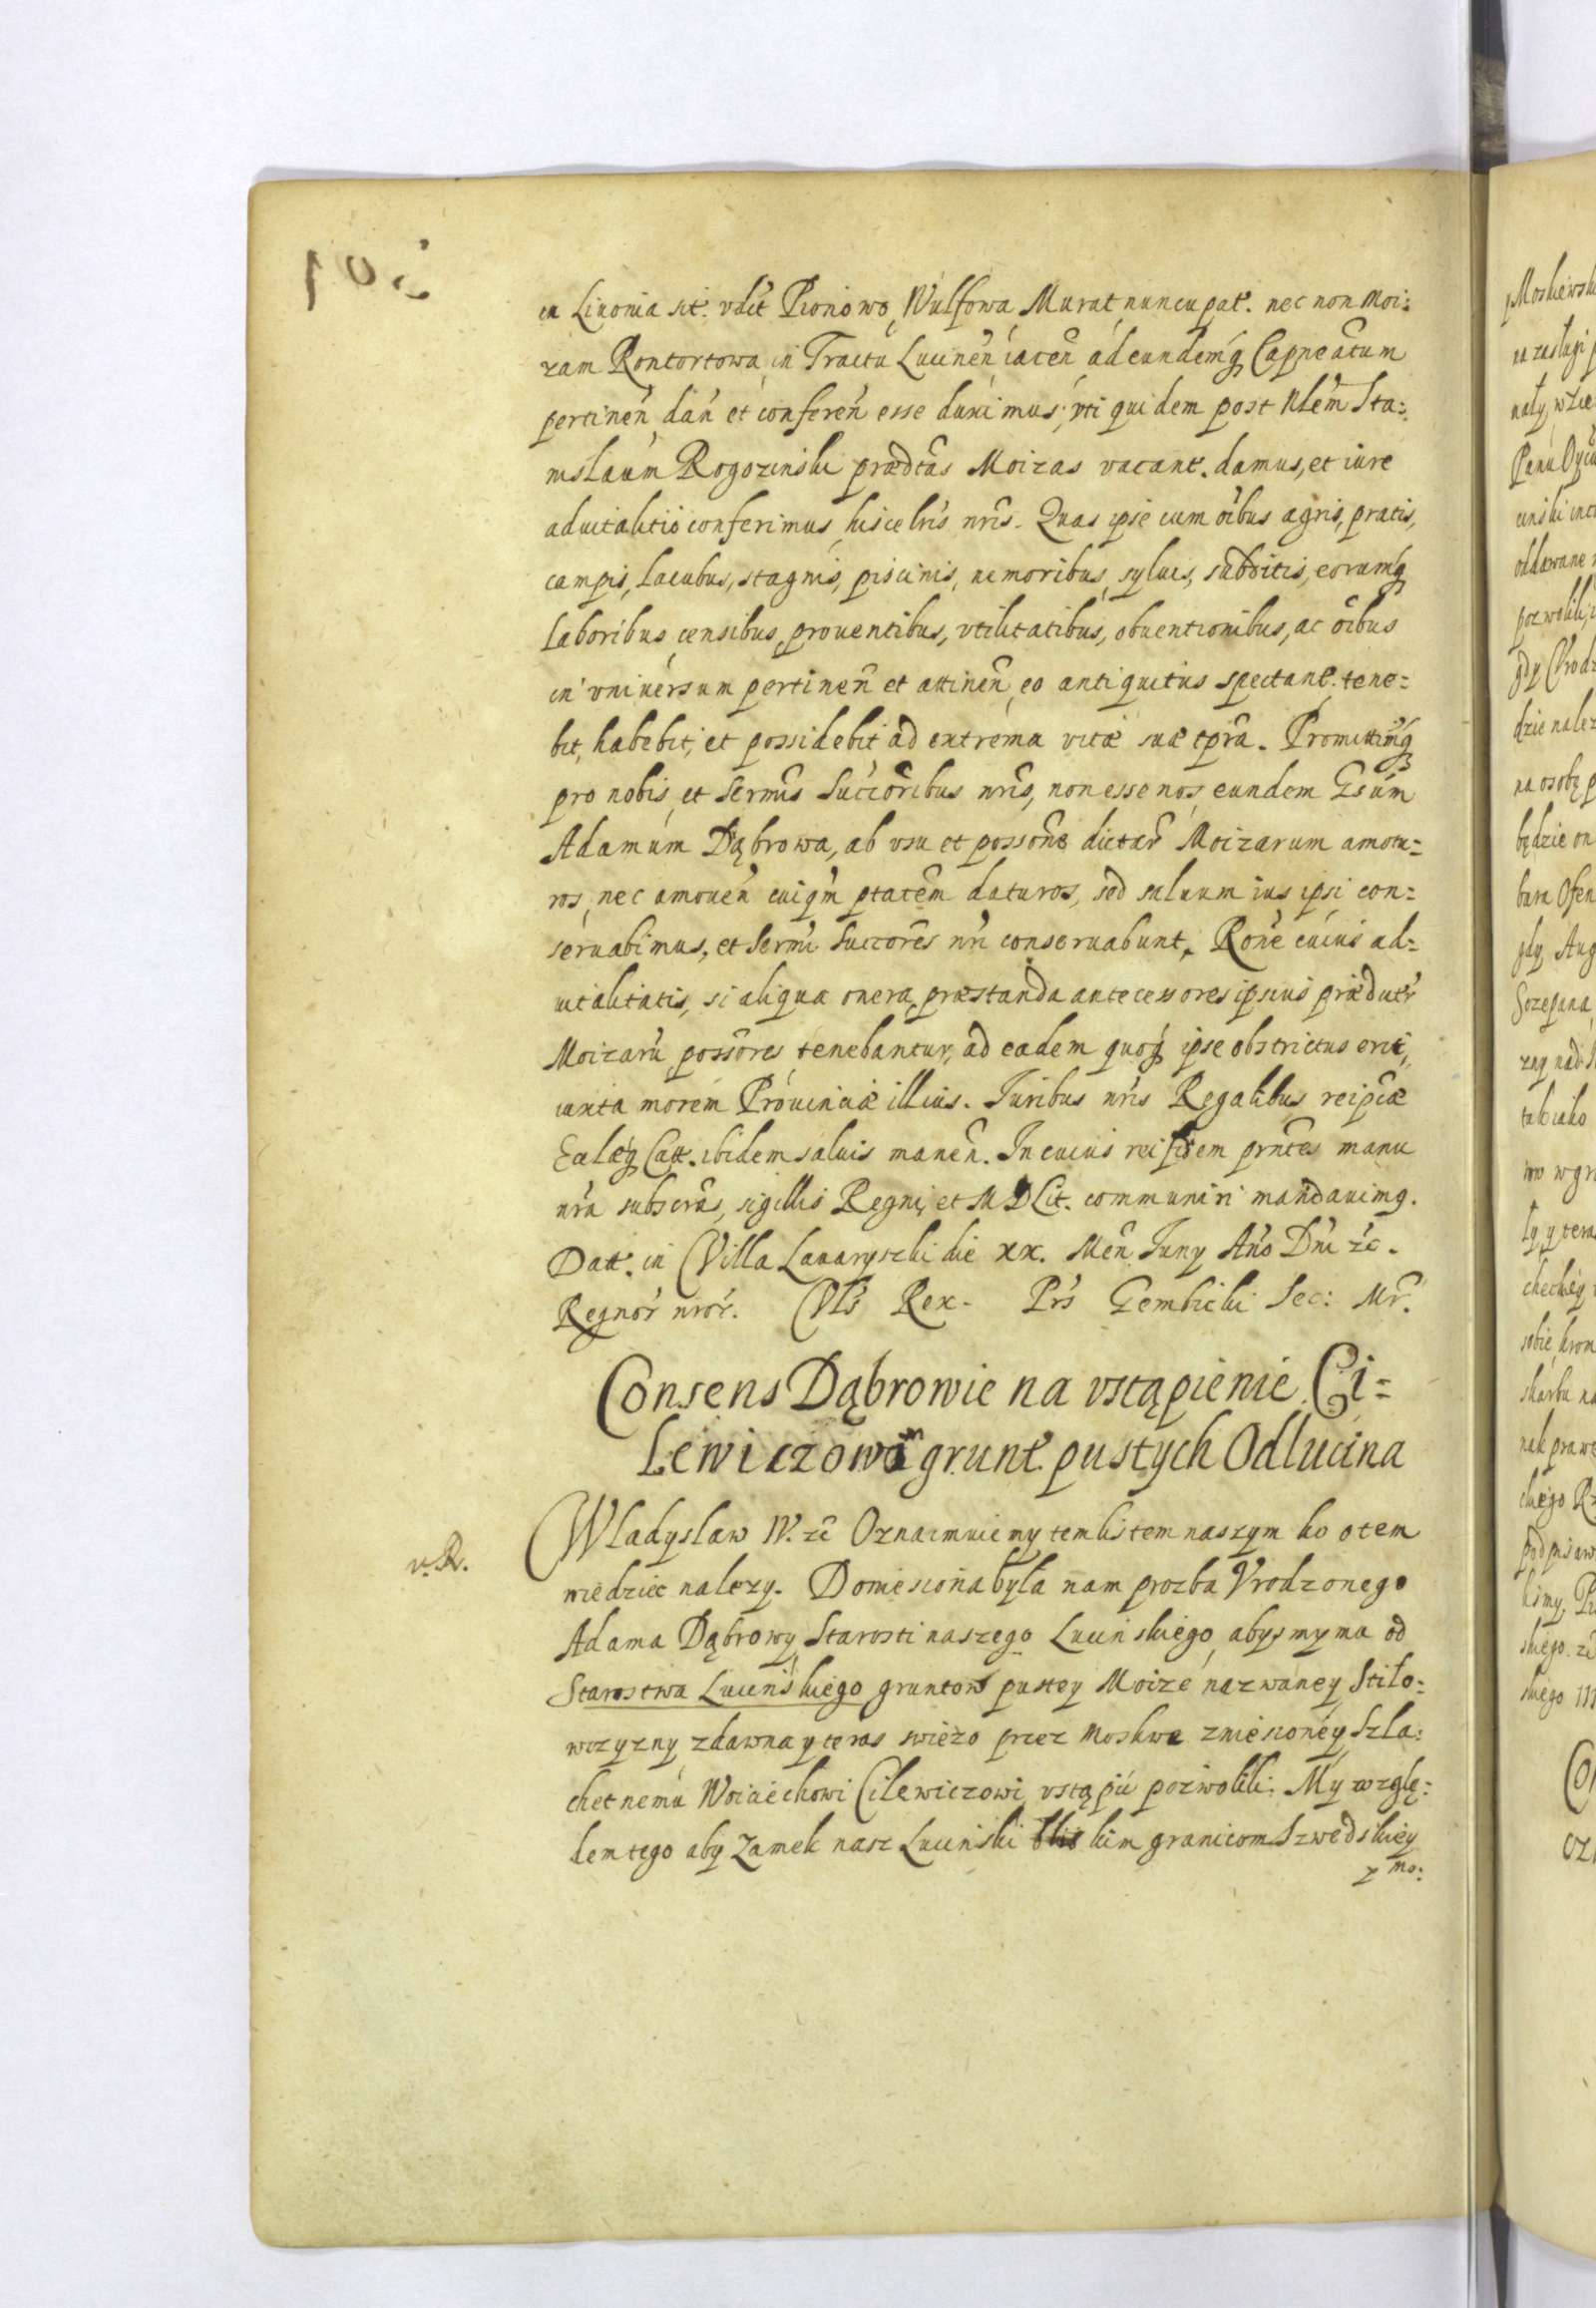 in Liuonia sit. vdlt Pioniowo, Wulfowa Murat nuncupat. nec non Moi:
zam Rontortowa in Tractu Lucineñ iaceñ ad eundemq Capneatum
pertineñ dañ et confereñ esse duximus, vti quidem post Nlem Sta:
nislaum Rogozinski prædtas Moizas vacant. damus, et iure
aduitalitio conferimus hisce lris nris. Quas ipse cum oibus agris, pratis,
campis, lacubus, stagnis, piscinis, nemoribus, syluis, subditis, eorumq
laboribus, censibus, prouentibus, vtilitatibus, obuentionibus, ac oibus
in vniuersum pertineñ et attineñ, eo antiquitus spectant. tene=
bit, habebit, et possidebit ad extrema vitæ suæ tpra. Promittimq
pro nobis, et Sermis Succoribus nris, non esse nos eundem Gsum
Adamum Dąbrowa, ab vsu et possone dictar Moizarum amotu=
ros, nec amoueñ cuiqm ptatem daturos, sed saluum ius ipsi con=
seruabimus, et Sermi Succores nri conseruabunt. Rone cuius ad=
uitalitatis, si aliqua onera præstanda antecessores ipsius prædictr
Moizaru possores tenebantur, ad eadem quoq ipse obstrictus erit,
iuxta morem Prouinciæ illius. Iuribus nris Regalibus reipcæ
Ecclæq Catt. ibidem saluis maneñ. In cuius rei fidem prntes manu
nra subscras, sigillis Regni, et MDLit. communiri mandauimq.
Datt. in Villa Lauaryszki die xx. Meñ Juny Año Dni zc.
Regnor nror. Vls Rex. Prs Gembicki Sec: Mr.
Consens Dąbrowie na vstąpienie Ci=
lewiczowi grunt. pustych Od Lucina
v. R.
Wladyslaw IV. zc Oznaimuiemy tem listem naszym ko o tem
wiedziec nalezy. Doniesiona była nam prozba Vrodzonego
Adama Dąbrowy Starosti naszego Lucinskiego, abysmy ma od
Starostwa Lucinskiego gruntow pustey Moize nazwaney Stilo:
wczyzny zdawna y teras swiezo przez Moskwe zniesioney Szla:
chetnemu Woiciechowi Cilewiczowi vstąpic pozwolili. My wzglę:
dem tego aby Zamek nasz Lucinski bliskim granicom Szwedskiey
z Mo: